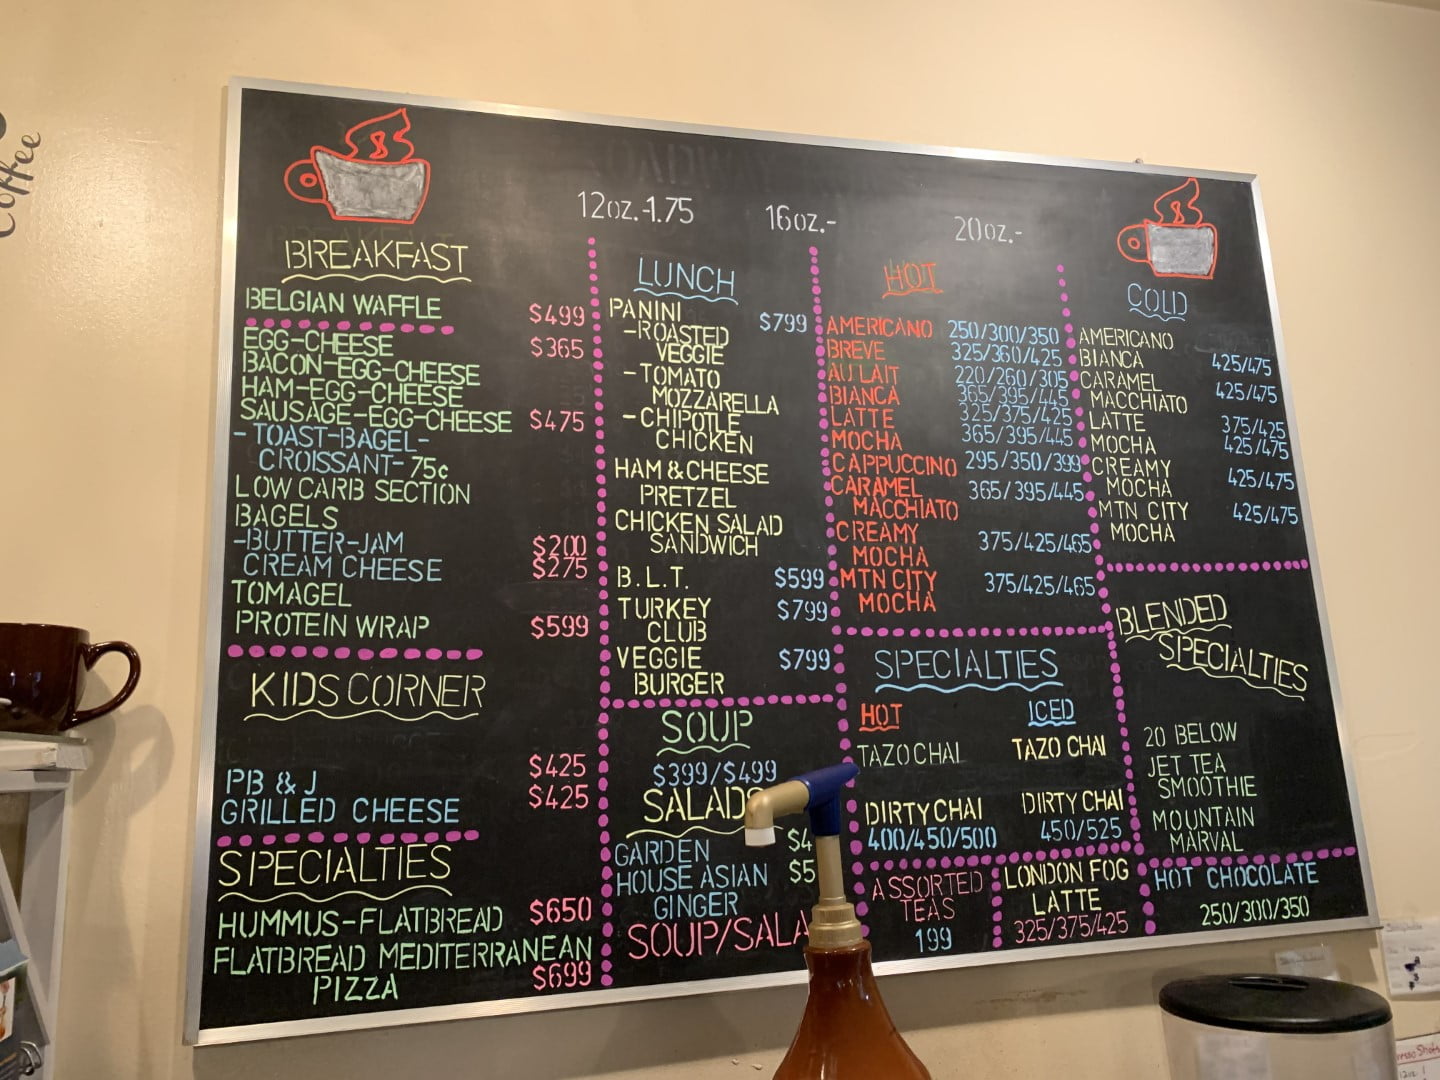 Coffee
12oz.-1.75
16oz.-
20oz.-
BREAKFAST
BELGIAN WAFFLE $499
EGG-CHEESE $365
BACON-EGG-CHEESE
HAM-EGG-CHEESE
SAUSAGE-EGG-CHEESE $475
-TOAST-BAGEL-
CROISSANT-75¢
LOW CARB SECTION
BAGELS
-BUTTER-JAM $200
CREAM CHEESE $275
TOMAGEL
PROTEIN WRAP $599
KIDS CORNER
PB & J $425
GRILLED CHEESE $425
SPECIALTIES
HUMMUS-FLATBREAD $650
FLATBREAD MEDITERRANEAN
PIZZA $699
LUNCH
PANINI $799
-ROASTED
VEGGIE
-TOMATO
MOZZARELLA
-CHIPOTLE
CHICKEN
HAM & CHEESE
PRETZEL
CHICKEN SALAD
SANDWICH
B.L.T. $599
TURKEY $799
CLUB
VEGGIE $799
BURGER
SOUP
$399/$499
SALADS
GARDEN $4
HOUSE ASIAN $5
GINGER
SOUP/SALA
HOT
AMERICANO 250/300/350
BREVE 325/360/425
AU LAIT 220/260/305
BIANCA 365/395/445
LATTE 325/375/425
MOCHA 365/395/445
CAPPUCCINO 295/350/399
CARAMEL 365/395/445
MACCHIATO
CREAMY 375/425/465
MOCHA
MTN CITY 375/425/465
MOCHA
SPECIALTIES
HOT
TAZO CHAI
DIRTY CHAI
400/450/500
ICED
TAZO CHAI
DIRTY CHAI
450/525
ASSORTED
TEAS
199
LONDON FOG
LATTE
325/375/425
COLD
AMERICANO
BIANCA 425/475
CARAMEL 425/475
MACCHIATO
LATTE 375/425
MOCHA 425/475
CREAMY 425/475
MOCHA
MTN CITY 425/475
MOCHA
BLENDED
SPECIALTIES
20 BELOW
JET TEA
SMOOTHIE
MOUNTAIN
MARVAL
HOT CHOCOLATE
250/300/350